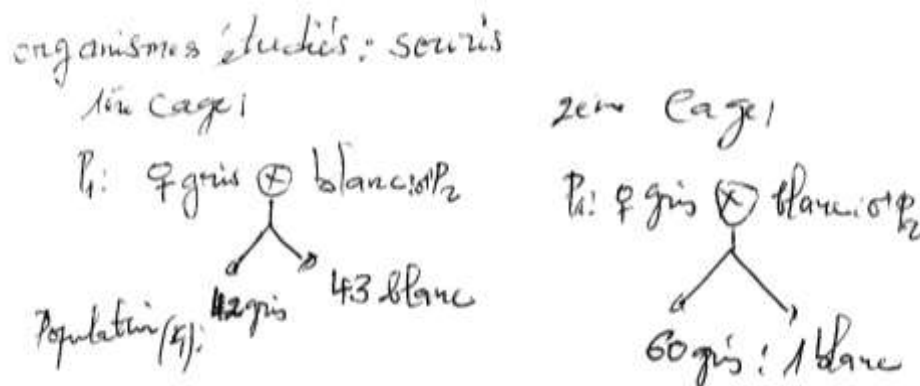 organismes étudiés: souris
1ère cage:
P₁: ♀ gris ⊗ blanc: ♂ P₂
Population (F₁): 42 gris 43 blanc
2ème Cage:
P₁: ♀ gris ⊗ blanc: ♂ P₂
60 gris : 1 blanc